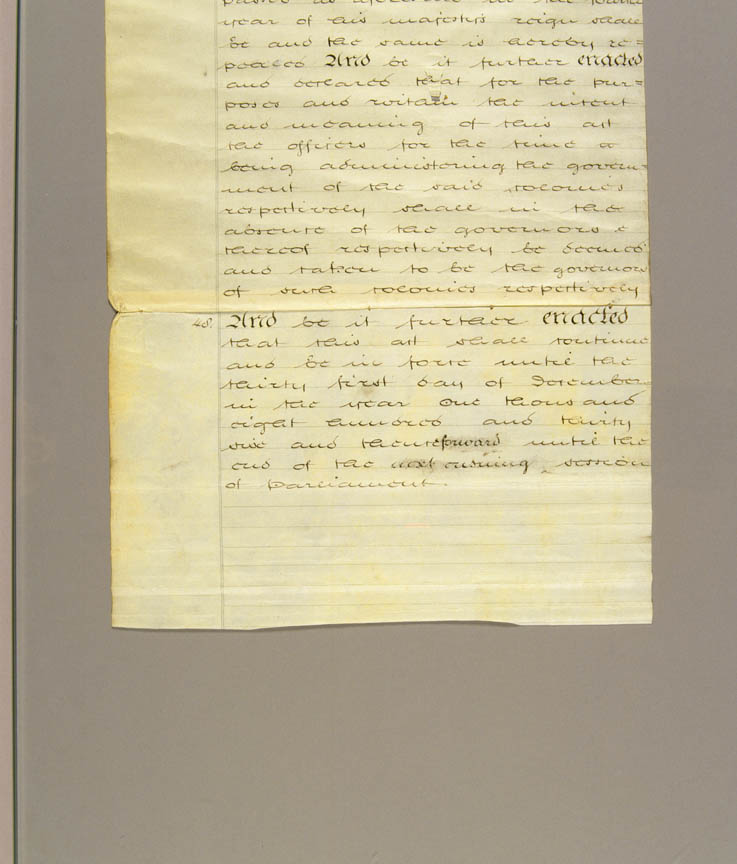 passed as aforesaid in the
year of his majesty's reign shall
be and the same is hereby re=
pealed And be it further enacted
and declared that for the pur=
poses and within the intent
and meaning of this act
the officers for the time
being administering the govern=
ment of the said colonies
respectively shall in the
absence of the governors
thereof respectively be deemed
and taken to be the governors
of such colonies respectively
And be it further enacted
that this act shall continue
and be in force until the
thirty first day of December
in the year One thousand
eight hundred and thirty
six and thenceforward until the
end of the next ensuing session
of parliament.